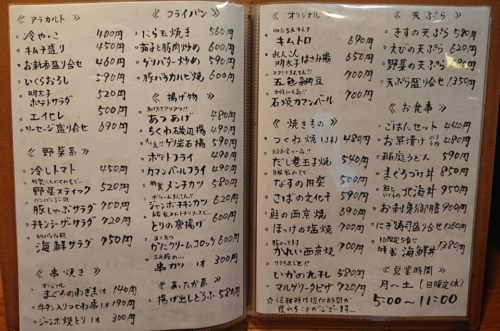 《 アラカルト 》
・冷やっこ 400円
・キムチ盛り 450円
・お新香盛り合せ 460円
・いくらおろし 590円
・明太子ポテトサラダ 520円
・エイヒレ 500円
・ソーセージ盛り合せ 690円
《 野菜系 》
・冷しトマト 450円
・野菜スティック 520円
・豚しゃぶサラダ 700円
・チキンシーザーサラダ 720円
・海鮮サラダ 750円
《 串焼き 》
オリジナル
・まぐろのねぎま 1本 140円
・牛タン入りつくね 1本 190円
・ジャンボ焼とり 1本 300円
《 フライパン 》
・にら玉焼き 560円
・茄子と豚肉炒め 600円
・ゲソバター炒め 590円
・豚バラカルビ焼 600円
《 揚げ物 》
・あつあげ 480円
・ちくわ磯辺揚 490円
・ポテトフライ 490円
・カマンベールフライ 490円
・メンチカツ 580円
・ジャンボチキンカツ 620円
・とりの唐揚げ 600円
・かにクリームコロッケ 600円
・串カツ 1本 300円
《 あたか系 》
・揚げ出しどうふ 580円
《 オリジナル 》
・キムトロ 690円
れんこん
明太子はさみ揚 650円
・五色納豆 650円
・石焼カマンベール 700円
《 焼きもの 》
・つくね焼 (2本) 480円
・だし巻玉子焼 540円
・なすの田楽 500円
・さばの文化干 590円
・鮭の西京焼 690円
・ほっけの塩焼 700円
・かれい西京焼 700円
・いかの丸干し 580円
・マルゲリータピザ 720円
《 天ぷら 》
・きすの天ぷら 580円
・えびの天ぷら 620円
・野菜の天ぷら
・天ぷら盛り合せ 1350円
《 お食事 》
・ごはんセット 440円
・お茶漬け 480円
・稲庭うどん 590円
・まぐろづけ丼 850円
・北海丼 950円
・お刺身御膳 900円
・にぎり鮨盛り合せ 1160円
・特製 海鮮丼 1380円
《 営業時間 》
月〜土 (日曜定休)
5:00〜11:00